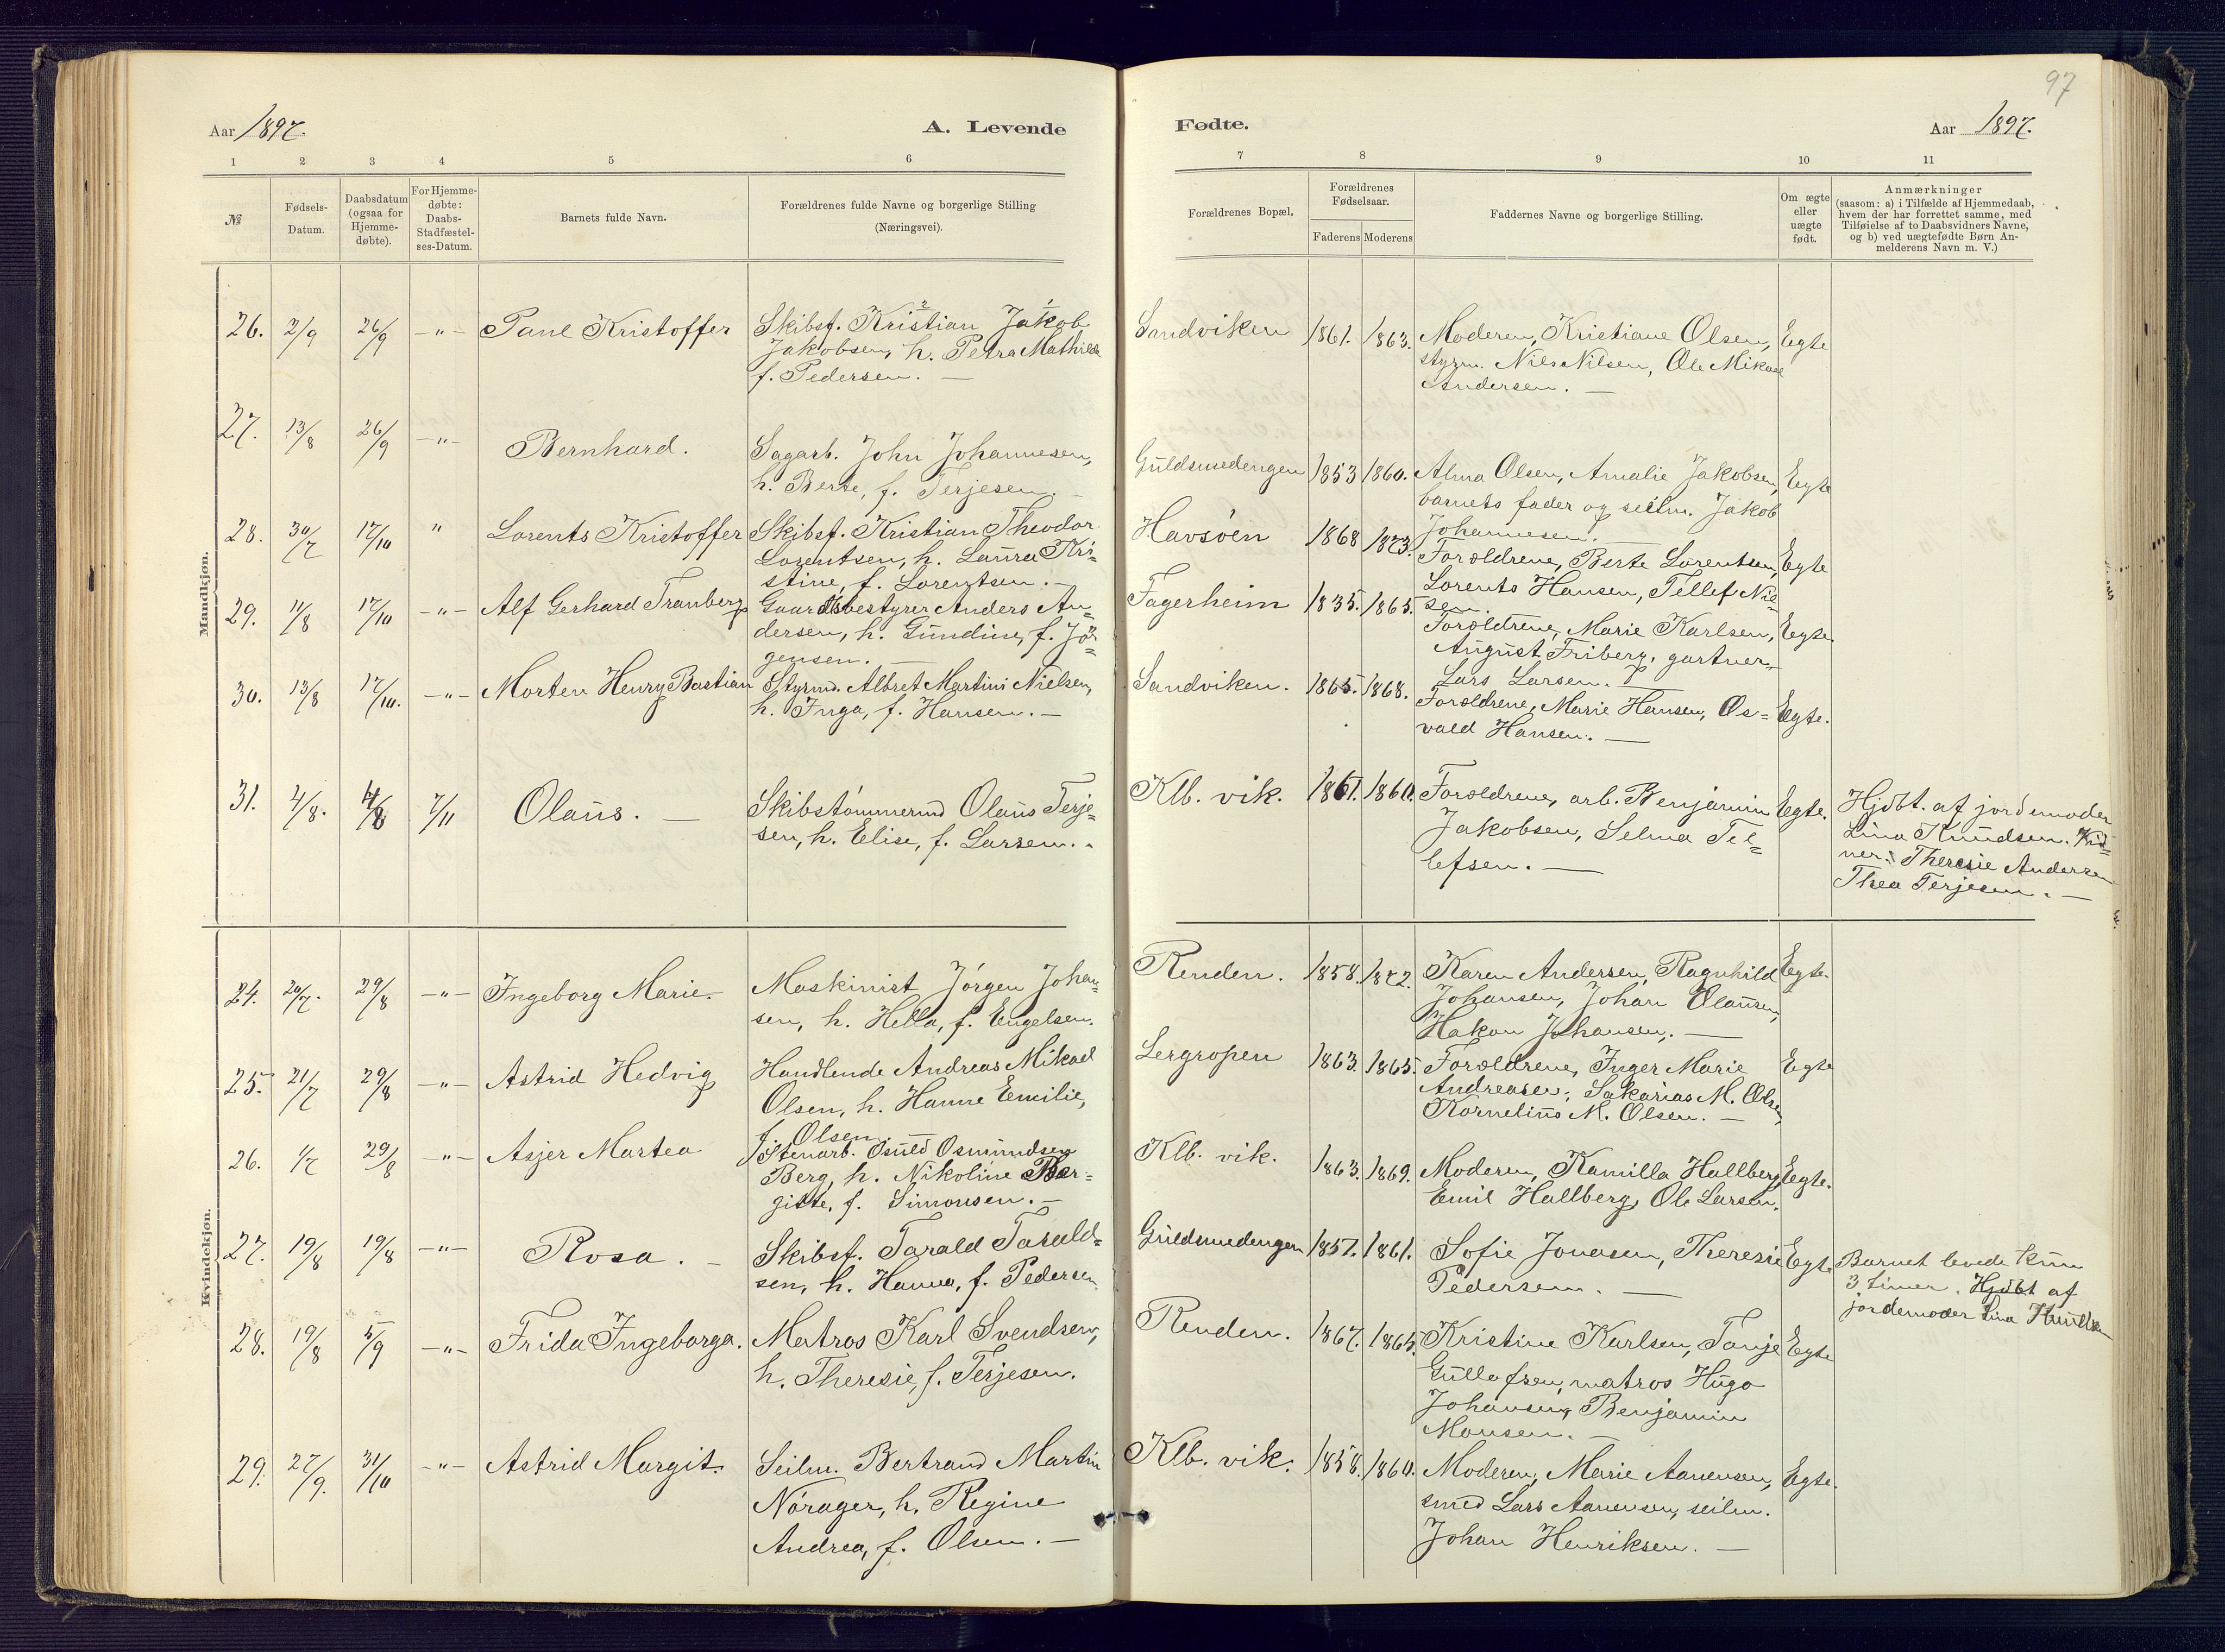 97
Aar 1897.
A. Levende
Fødte.
Aar 1897.
1 2 3 4 5 6
7 8 9 10 11
№
Fødsels-
Datum.
Daabsdatum
(ogsaa for
Hjemme-
døbte).
For Hjemme-
døbte:
Daabs-
Stadfæstel-
ses-Datum.
Barnets fulde Navn.
Forældrenes fulde Navne og borgerlige Stilling
(Næringsvei).
Forældrenes Bopæl.
Forældrenes
Fødselsaar.
Faderens Moderens
Faddernes Navne og borgerlige Stilling.
Om ægte
eller
uægte
født.
Anmærkninger
(saasom: a) i Tilfælde af Hjemmedaab,
hvem der har forrettet samme, med
Tilføielse af to Daabsvidners Navne,
og b) ved uægtefødte Børn An-
melderens Navn m. V.)
Mandkjøn.
26. 2/9 26/9 -"- Paul Kristoffer
Skibsf. Kristian Jakob
Jakobsen, h. Petra Mathilde
f. Pedersen. —
Sandviken 1861. 1863.
Moderen, Kristiane Olsen,
styrm. Nils Nilsen, Ole Mikael
Andersen. —
Egte
27. 13/8 26/9 -"- Bernhard.
Sagarb. John Johannesen,
h. Berte, f. Terjesen. —
Guldsmedengen 1853 1860.
Alma Olsen, Amalie Jakobsen,
barnets fader og seilm. Jakob
Johannesen. —
Egte
28. 30/7 17/10 " Lorents Kristoffer
Skibsf. Kristian Theodor
Lorentsen, h. Laura Kri=
stine, f. Lorentsen. —
Havsöen 1868 1873.
Forældrene, Berte Lorentsen,
Lorents Hansen, Tellef Nil=
sen.
Egte
29. 11/8 17/10 -"- Alf Gerhard Tranberg
Gaardsbestyrer Anders An=
dersen, h. Gundine, f. Jö=
gensen. —
Fagerheim 1835. 1865.
Forældrene, Marie Karlsen,
August Friberg, gartner
Lars Larsen. —
Egte.
30. 13/8 17/10. -"- Morten Henry Bastian
Styrmd. Albret Martini Nielsen,
h. Inga, f. Hansen. —
Sandviken. 1865. 1868.
Forældrene, Marie Hansen, Os=
vald Hansen. —
Egte.
31. 4/8. 4/8 7/11 Olaus. —
Skibstömmermd Olaus Terje=
sen, h. Elise, f. Larsen. -
Klb. vik. 1861. 1860.
Forældrene, arb. Benjamin
Jakobsen, Selma Tel=
lefsen. —
Egte.
Hjdbt. af jordemoder
Lina Knudsen. Vid=
ner: Theresie Andersen
Thea Terjesen. —
Kvindekjøn.
24. 20/7. 29/8 -"- Ingeborg Marie.
Maskinist Jörgen Johan=
sen, h. Hella, f. Engelsen.
Renden. 1858. 1872.
Karen Andersen, Ragnhild
Johansen, Johan Olausen,
Hakon Johansen. —
Egte.
25. 21/7 29/8 -"- Astrid Hedvig
Handlende Andreas Mikael
Olsen, h. Hanne Emilie,
f. Olsen
Lergropen 1863. 1865.
Forældrene, Inger Marie
Andreasen, Sakarias M. Olsen
Kornelius M. Olsen. —
Egte
26. 1/7 29/8 -"- Asjer Martea
Stenarb. Osuld Osmundsen
Berg, h. Nikoline Ber=
gitte, f. Simonsen. —
Klb. vik. 1863. 1869.
Moderen, Kamilla Hallberg
Emil Hallberg, Ole Larsen.
Egte.
27. 19/8 19/8 -"- Rosa. —
Skibsf. Tarald Tarald=
sen, h. Hanna, f. Pedersen
Guldsmedengen 1857. 1861.
Sofie Jonasen, Theresie
Pedersen. —
Egte
Barnet levede kun
3 timer. Hjdbt af
jordemoder Lina Knudsen
28. 19/8 5/9 -"- Frida Ingeborga.
Matros Karl Svendsen,
h. Theresie, f. Terjesen.
Renden. 1867. 1865.
Kristine Karlsen, Tonje
Gullofsen, matros Hugo
Johansen, Benjamin
Monsen. —
Egte
29. 27/9. 31/10 -"- Astrid Margit.
Seilm. Bertrand Martin
Nórager, h. Regine
Andrea, f. Olsen. —
Klb. vik. 1858. 1860.
Moderen, Marie Aanensen,
smed Lars Aanensen, seilm.
Johan Henriksen. —
Egte.